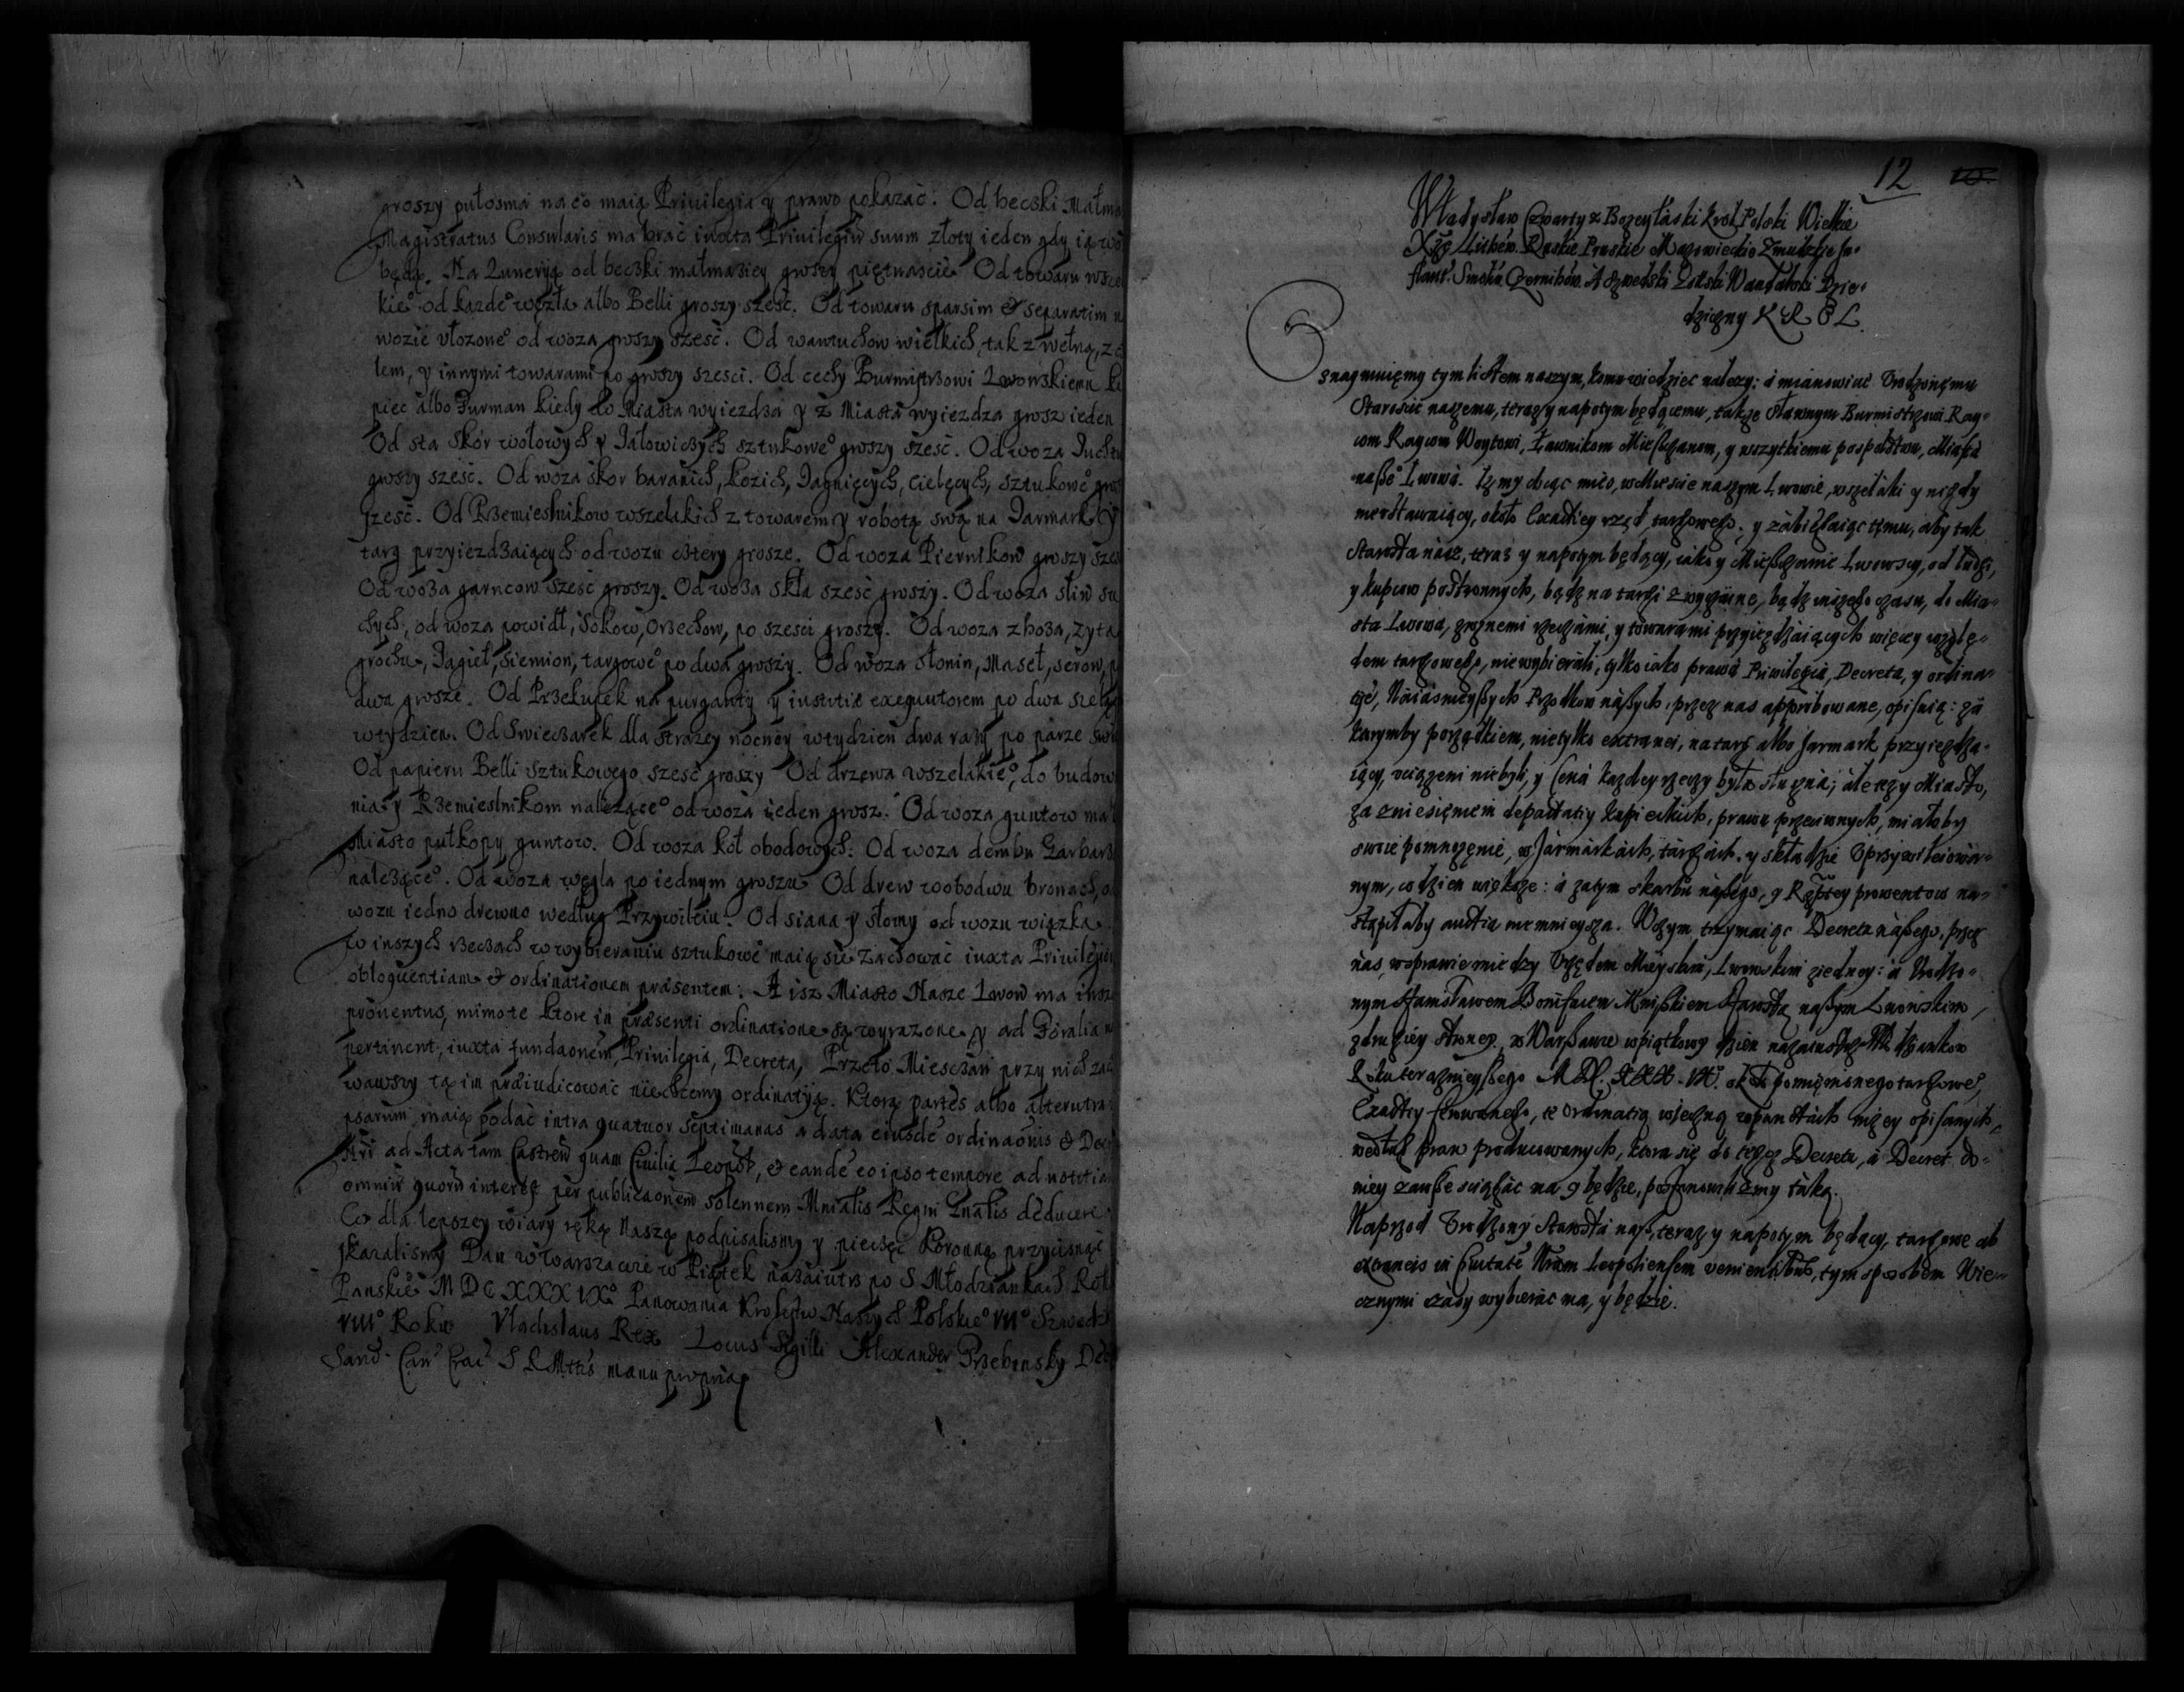 groszy pułosma na co maią Priuilegia y prawo pokazać. Od beczki Małma
Magistratus Consularis ma brać iuxta Priuilegiū suum złoty ieden gdy ią
będą. Na Luneryią od beczki małmaziey groszy piętnascie Od towaru wsze
kieº od kazdeº węzła albo Belli groszy szesc. Od towaru sparsim & separatim
wozie włozoneº od woza groszy szesc. Od wantuchow wielkich, tak z wełną,
lem, y innymi towarami po groszy szesci. Od cechy Burmistrzowi Lwowskiemu
piec albo Furman kiedy do Miasta wyiezdza y z Miasta wyiezdza grosz ieden
Od sta skór wołowych y Iałowiczych sztukoweº groszy szesc. Od woza Iucht
groszy szesc. Od woza skor baranich, kozich, Iagnięcych, cielęcych, sztukoweº
szesc. Od Rzemieslnikow wszelakich z towarem y robotą swą na Iarmark y
targ przyiezdzaiących od wozu cztery grosze. Od woza Piernikow groszy
Od woza garncow szesc groszy. Od woza skła szesc groszy. Od woza sliw su
chych, od woza powidł, sokow, orzechow, po szesci groszy. Od woza zboza, zyta
grochu, Iagieł, siemion, targoweº po dwa groszy. Od woza słonin, maseł, serow,
dwa grosze. Od Przekupek na purganty y iustitiæ exequutorem po dwa szelą
w tydzien. Od Swieczarek dla strazey nocney w tydzien dwa razy po parze
Od papieru Belli sztukowego szesc groszy Od drzewa wszelakieº, do budow
nia y Rzemieslnikom naleząceº od woza ieden grosz. Od woza guntow ma
Miasto pułkopy guntow. Od woza koł obodowych: Od woza dembu Garbarz
naleząceº. Od woza węgla po iednym groszu Od drew w obodwu bronach,
wozu iedno drewno według Przywileiu. Od siana y słomy od wozu wiązka
w inszych rzeczach w wybieraniu sztukoweº maią się zachować iuxta Priuilegior
obloquentiam & ordinationem præsentem. A isz Miasto Nasze Lwow ma
prouentus, mimo te ktore in præsenti ordinatione są wyrazone y ad Foralia
pertinent, iuxta fundaonem, Priuilegia, Decreta, Przeto Mieszczan przy nich
wawszy tą im præiudicować niechcemy ordinatyią. Ktorą partes albo alterutra
psarum maią podać intra quatuor septimanas a data eiusdē ordinaōnis & De
Nrī ad Acta tam Castreñ quam Ciuilia Leopoł, & eandē eo ipso tempore ad notitia
omniū quorū interest per publicaonem solennem Mnialis Regni Gnalis deducere
Co dla lepszey wiary ręką Naszą podpisalismy y pieczęć Koronną przycisnąć
skazalismy Dan w Warszawie w Piątek nazaiutrz po S Młodziankach Rok
Panskieº MDCXXXIXº Panowania Krolestw Naszych Polskieº VIIº Szwedz
VIIIº Roku Vladislaus Rex Locus Sigilli Alexander Trzebinsky
Sand. Can Crac S R Mttis manu propria
12 10
Władysław Czwarty z Bozey łaski Krol Polski Wielkie
Xżę Litew. Ruskie Pruskie Mazowieckie Zmudzkie In-
flant. Smolen. Czernihow. A Szwedzki Gotski Wandalski Dzie-
dziczny KROL.
Oznaymuięmy tym listem naszym, komu wiedziec nalezy: á mianowicié Vrodzonęmu
Staroscié naszemu, teraz y napotym będącemu, takze sławnym Burmistrzowi Ray-
com Raycom Woytowi, Ławnikom Mieszczanom, y wszytkiemu pospolstwu, Miasta
naszeº Lwowá. Iz my chcąc mieć, w Miescie naszym Lwowie, wszelaki y nigdy
nieustawaiący, około Exactiey rząd targowego; y zabiegaiąc tęmu, aby tak
Starosta nasz, teraz y napotym będący, iako y Mieszczanie Lwowscy, od ludzi,
y kupcow postronnych, bądz na targi zwyczaine, bądz inszego czasu, do Mia-
sta Lwowá, z roznemi rzeczámi, y towarami przyiezdzaiących więcey wzglę-
dem targowego, niewybieráli, tylko iako prawá Priwilegiá, Decreta, y ordina-
tyié, Náiásnieyszych Przodkow nászych, przez nas approbowane, opisuią: zá
ktorymby porządkiem, nietylko extranei, na targ albo Iarmark przyiezdza-
iący, vciązeni niebyli, y Cená kazdey rzeczy była słuszná; ále tezy Miásto,
zá zniesięniem depactatiy kupieckich, prawu przeciwnych, miałoby
swoie pomnozęnié, w Iármárkách, tárgách, y składzie vprzywileiowa-
nym, co dzien większe: á zátym skarbu nászego, y Rzptey prowentow na-
stąpiłaby auctia niemnieysza. W czym trzymaiąc Decreta nászego, przez
nas, w sprawie miedzy Vrzędem Mieyskim, Lwowskim z iedney: á Vrodzo-
nym Stanisławem Bonifacem Mniszkiem Starostą naszym Lwowskim,
z drugiey strony, w Warszawie w piątkowy dzien nazaiutrz Młodziankow
Roku teraznieyszego około pomięnionego targoweº,
Exactiy ferowanego, tę Ordinatią wieczną w punctách nizey opisanych,
wedlug praw producowanych, ktora się do tegoz Decretu, á Decret do
niey zawsze sciągać ma y będzie, postanowilismy taką.
Naprzod Vrodzony Starosta nász, teraz y napotym będący, targowe ab
extraneis in Ciuitatē Nram Leopoliensem venientibus, tym sposobem Wie-
cznymi czasy wybierac ma, y będzie.